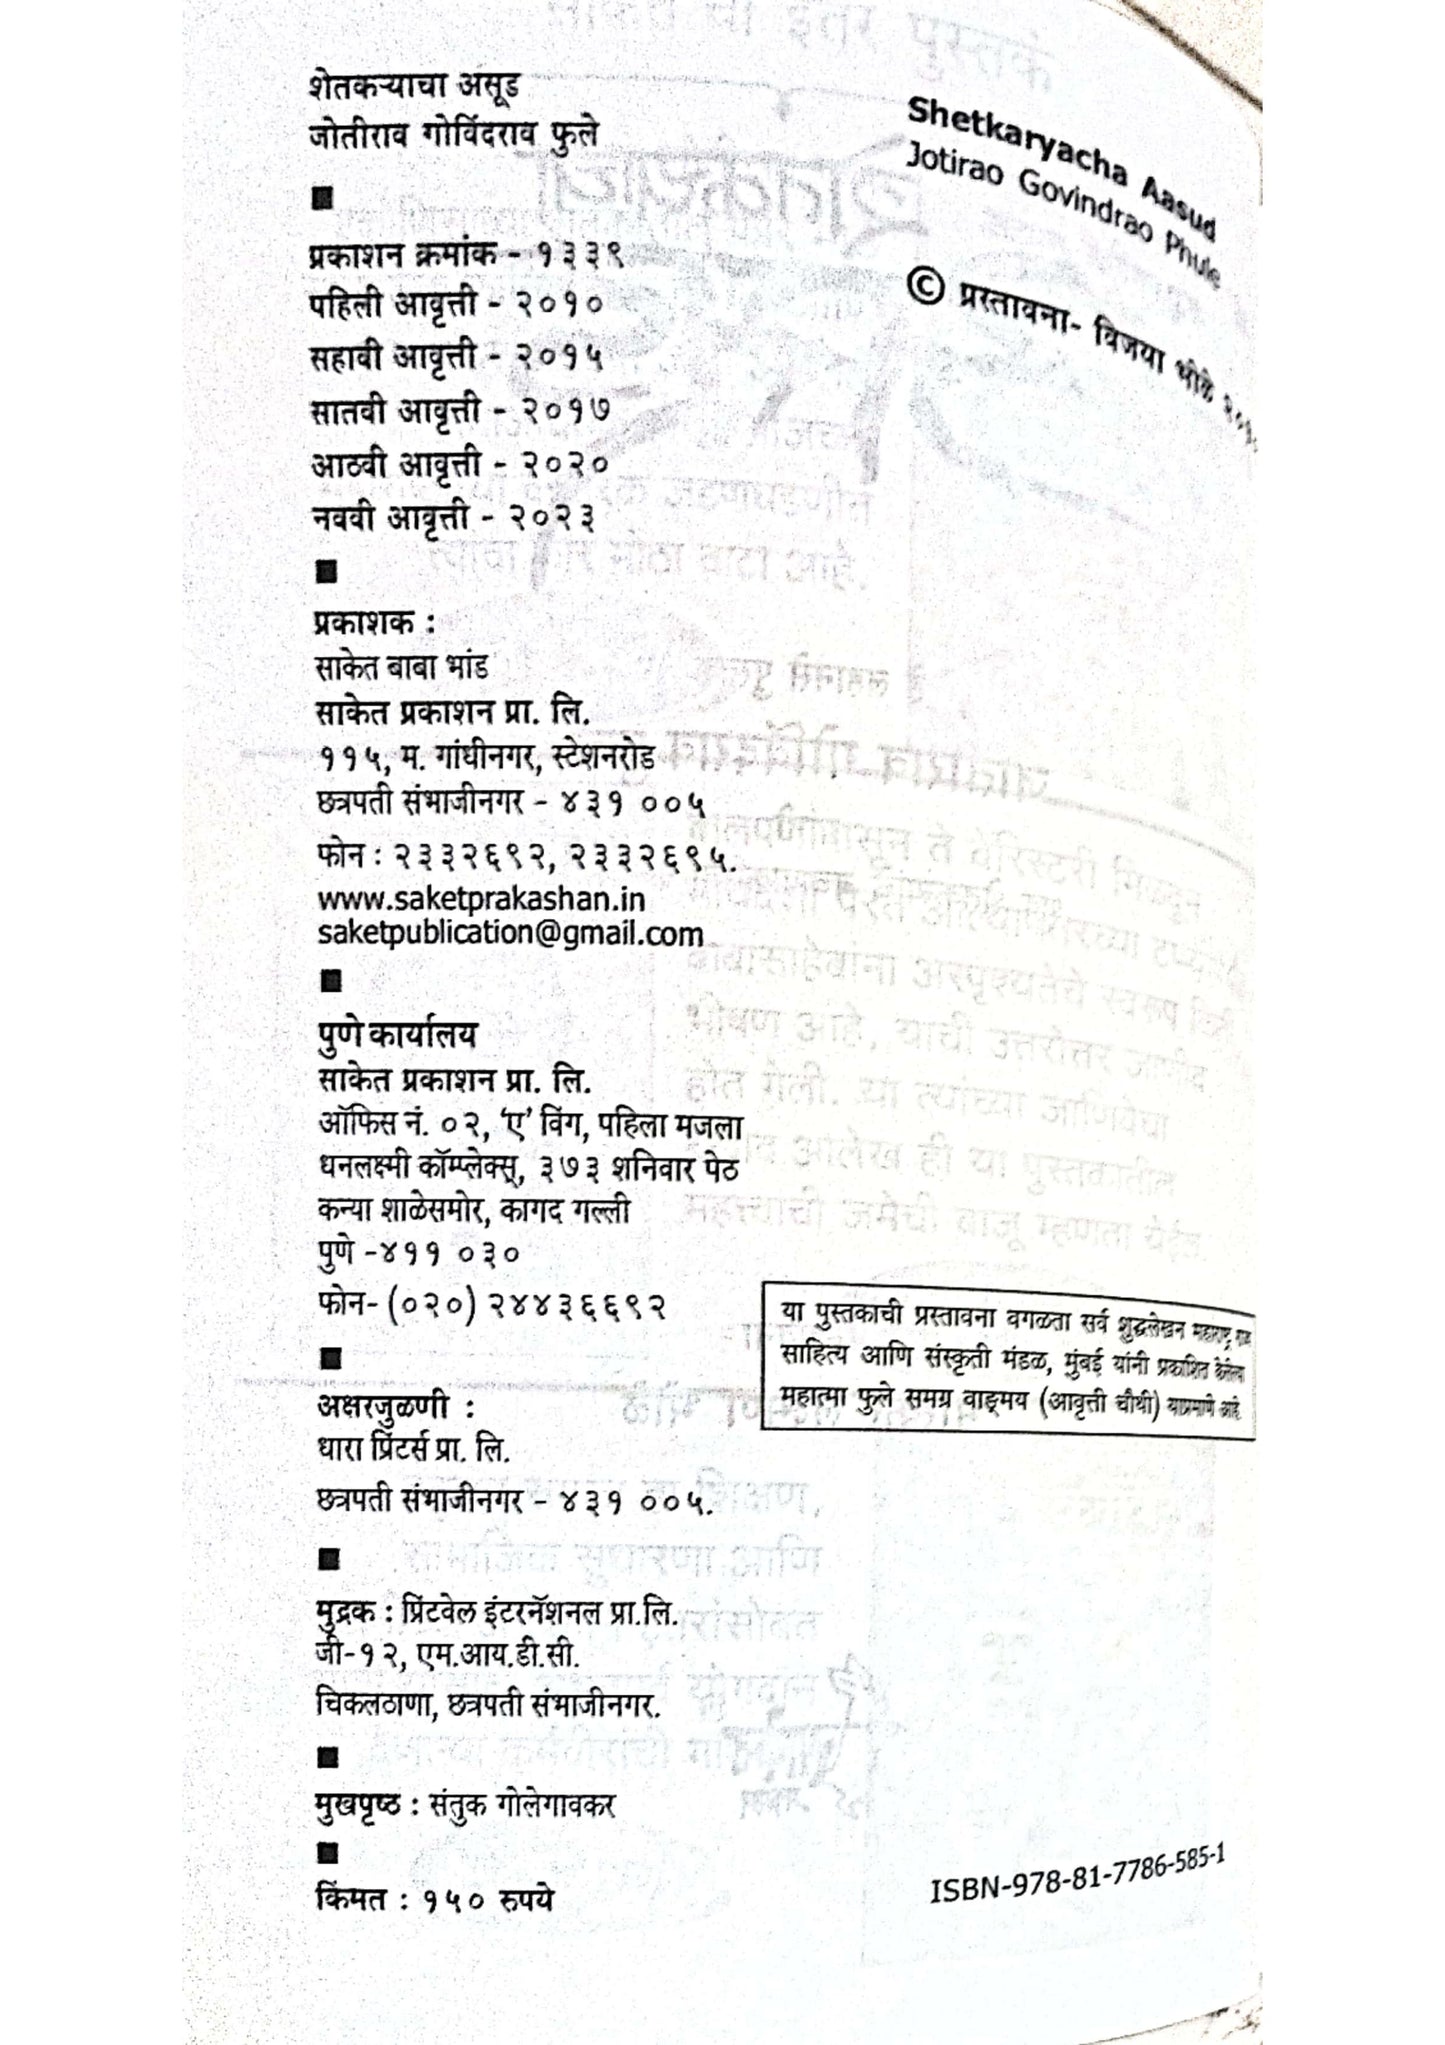 शेतकऱ्याचा असूड
जोतीराव गोविंदराव फुले
Shetkaryacha Aasud
Jotirao Govindrao Phule
© प्रस्तावना- विजया
प्रकाशन क्रमांक - १३३९
पहिली आवृत्ती - २०१०
सहावी आवृत्ती - २०१५
सातवी आवृत्ती - २०१७
आठवी आवृत्ती - २०२०
नववी आवृत्ती - २०२३
प्रकाशक :
साकेत बाबा भांड
साकेत प्रकाशन प्रा. लि.
११५, म. गांधीनगर, स्टेशनरोड
छत्रपती संभाजीनगर - ४३१ ००५
फोन : २३३२६९२, २३३२६९५.
www.saketprakashan.in
saketpublication@gmail.com
पुणे कार्यालय
साकेत प्रकाशन प्रा. लि.
ऑफिस नं. ०२, ‘ए’ विंग, पहिला मजला
धनलक्ष्मी कॉम्प्लेक्स्, ३७३ शनिवार पेठ
कन्या शाळेसमोर, कागद गल्ली
पुणे -४११ ०३०
फोन- (०२०) २४४३६६९२
या पुस्तकाची प्रस्तावना वगळता सर्व शुद्धलेखन महाराष्ट्र राज्य
साहित्य आणि संस्कृती मंडळ, मुंबई यांनी प्रकाशित केलेल्या
महात्मा फुले समग्र वाङ्मय (आवृत्ती चौथी) याप्रमाणे आहे.
अक्षरजुळणी :
धारा प्रिंटर्स प्रा. लि.
छत्रपती संभाजीनगर - ४३१ ००५.
मुद्रक : प्रिंटवेल इंटरनॅशनल प्रा.लि.
जी-१२, एम.आय.डी.सी.
चिकलठाणा, छत्रपती संभाजीनगर.
मुखपृष्ठ : संतुक गोलेगावकर
किंमत : १५० रुपये
ISBN-978-81-7786-585-1